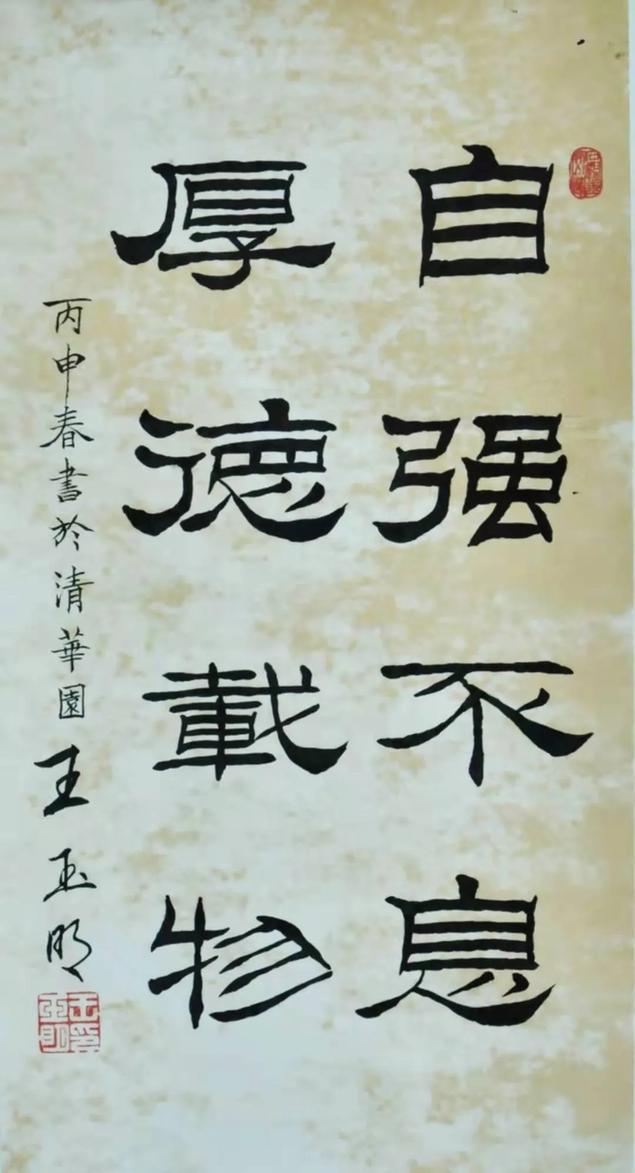 自强不息
厚德載物
丙申春書於清華園
王玉明